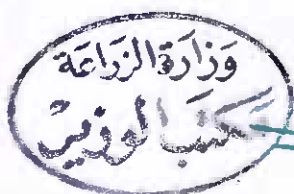 وزارة الزراعة
مكتب الوزير